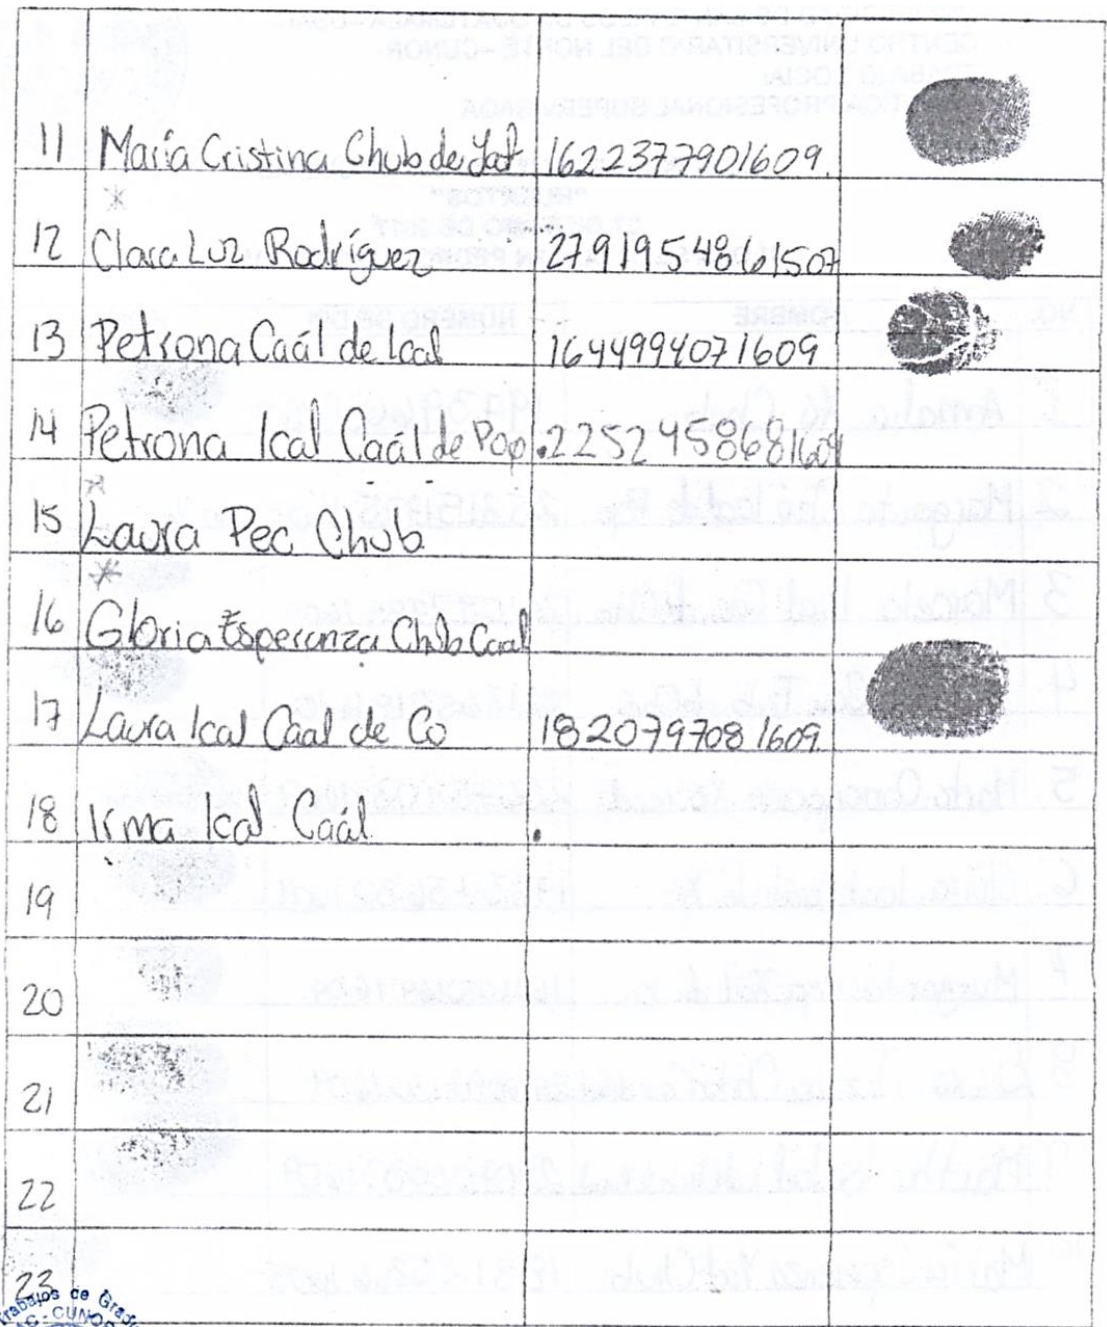 11 María Cristina Chub de 1622377901609.
12 Clara Luz Rodríguez 2791954861507
13 Petrona Caál de Ical 1644994071609
14 Petrona Ical Caál de Pop 22524958681609
15 Laura Pec Chub
16 Gloria Esperanza Chub Caal
17 Laura Ical Caal de Co 1820797081609
18 Irma Ical Caál
19
20
21
22
23
Trabajos de